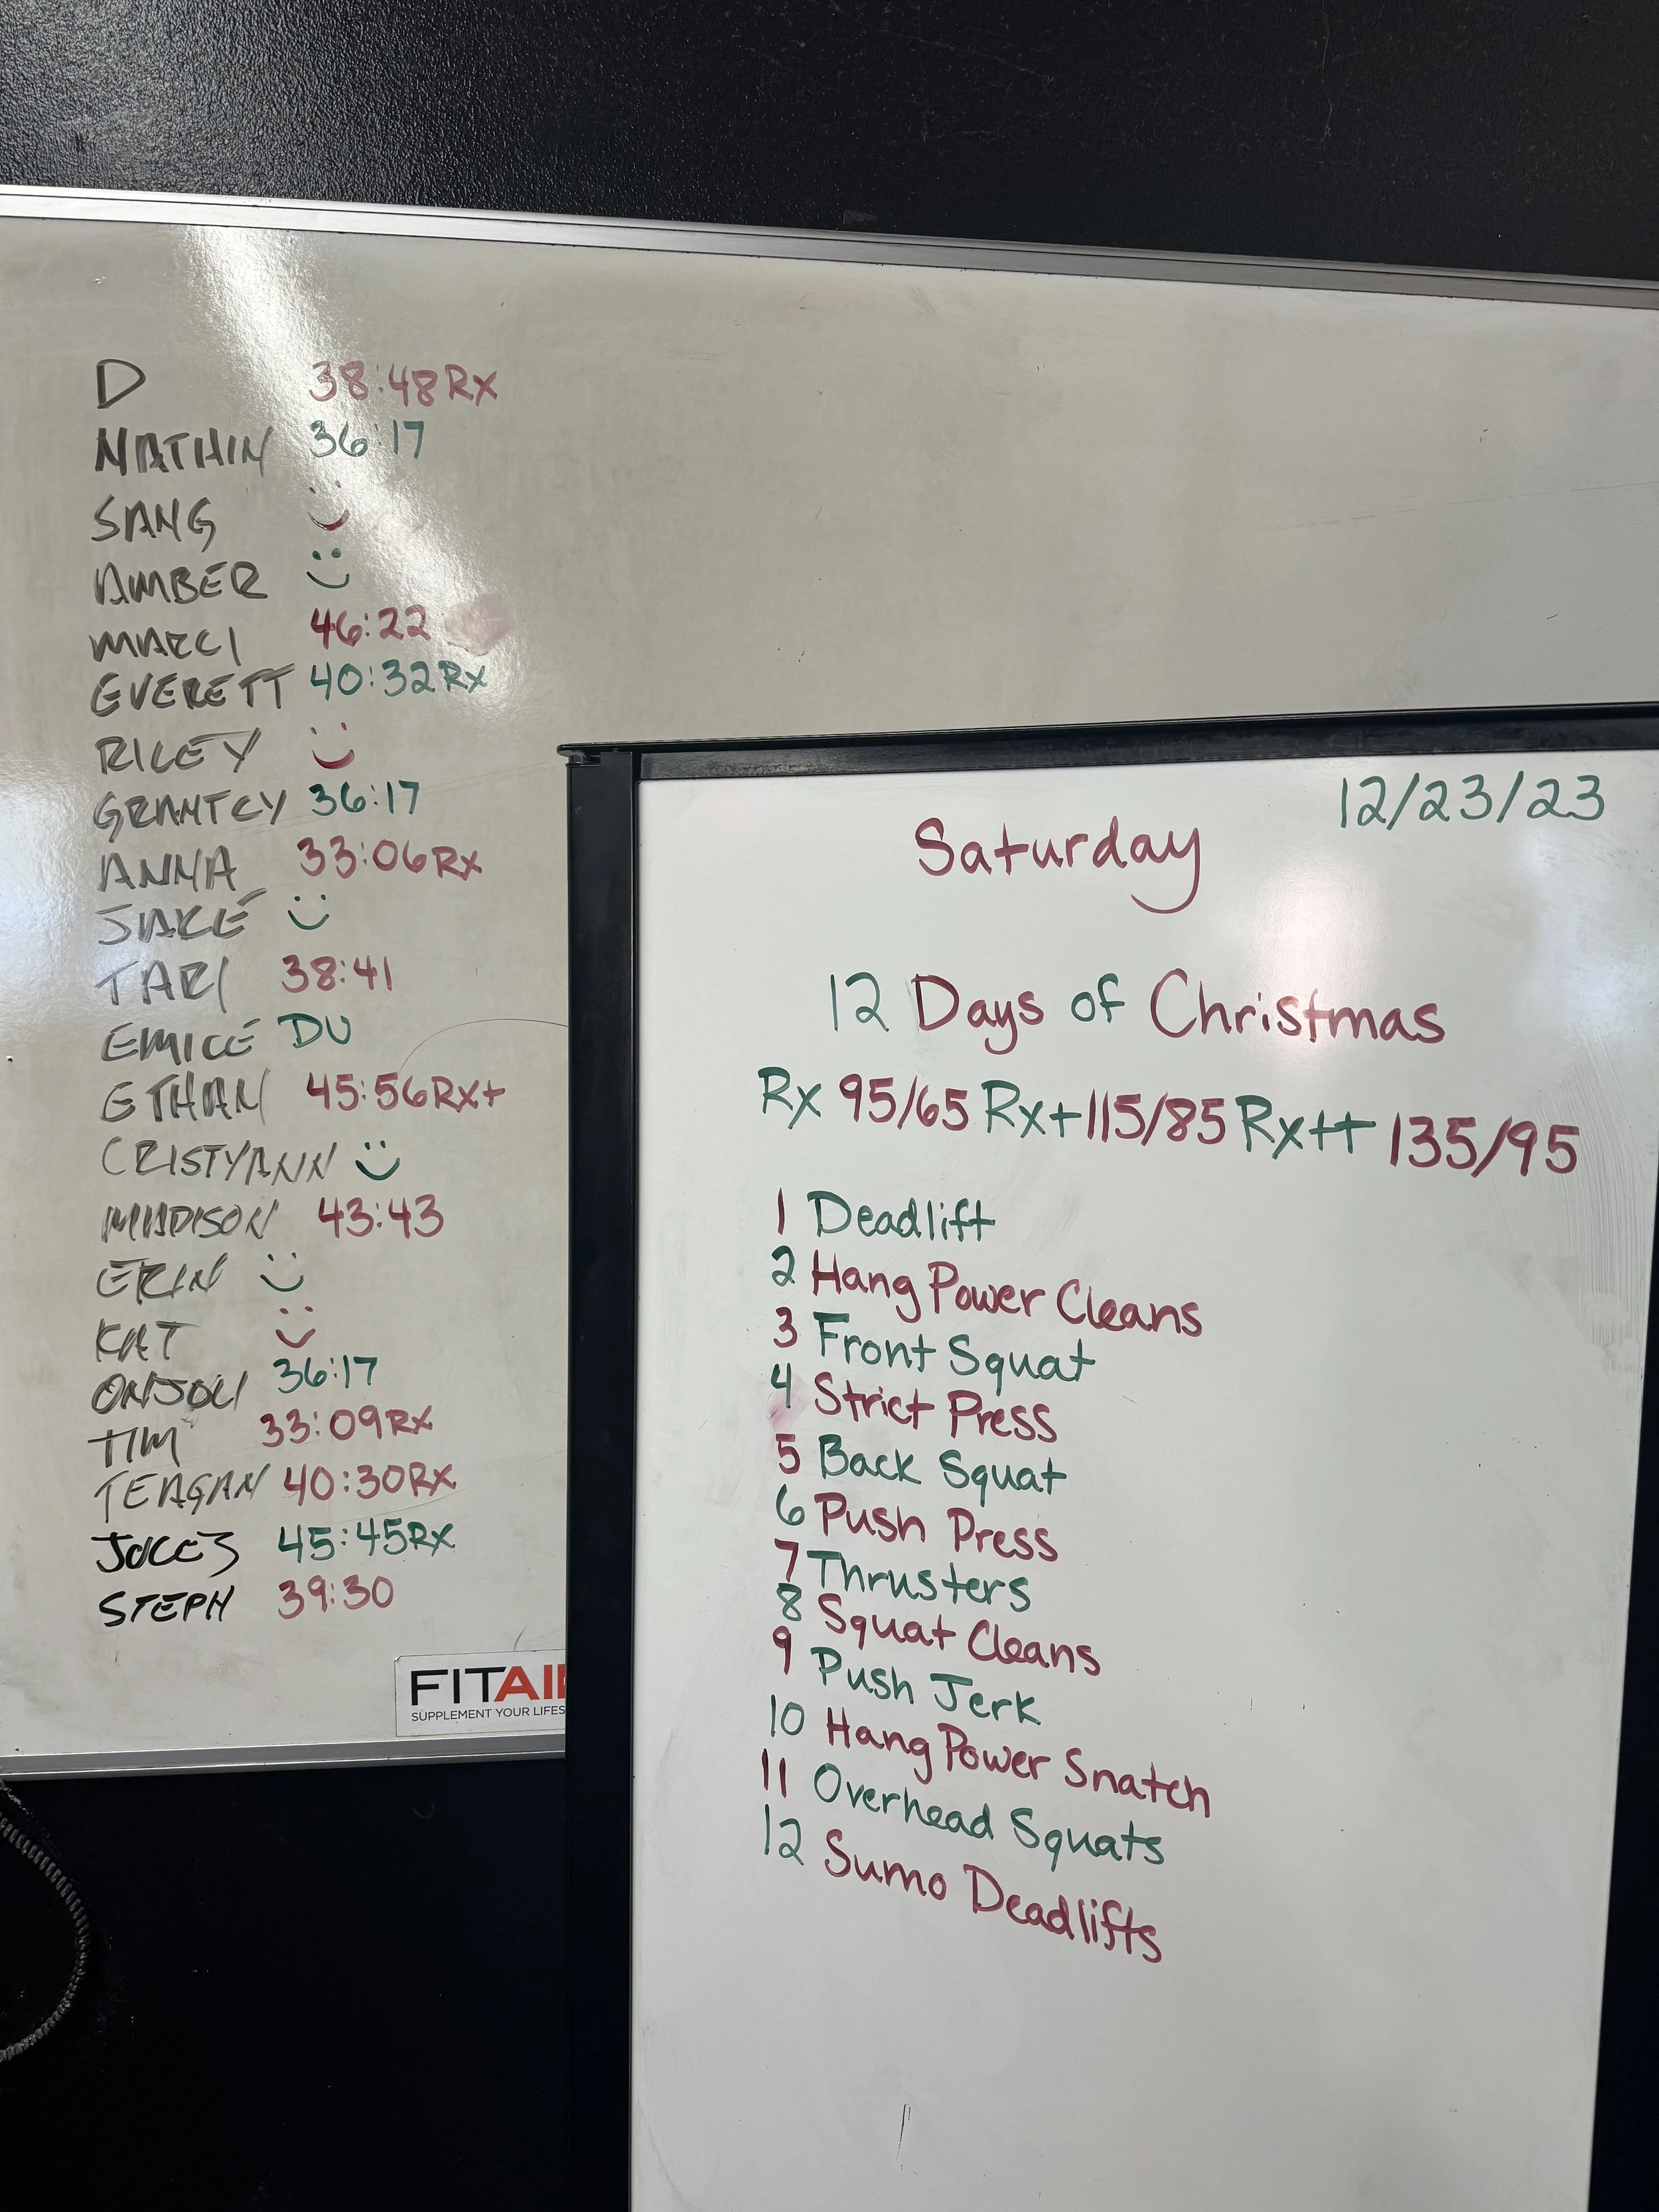 D 38:48 Rx
NATHIN 36:17
SANG
AMBER
MARCI 46:22
EVERETT 40:32 Rx
RILEY
GRANTCY 36:17
ANNA 33:06 Rx
JAKE
TARI 38:41
EMILE DU
ETHAN 45:56 Rx+
CRISTYANN
MADISON 43:43
ERIN
KAT
36:17
TIM 33:09 Rx
TEAGAN 40:30 Rx
45:45 Rx
STEPH 39:30
FITAI
SUPPLEMENT YOUR LIFES
12/23/23
Saturday
12 Days of Christmas
Rx 95/65 Rx+ 115/85 Rx++ 135/95
1 Deadlift
2 Hang Power Cleans
3 Front Squat
4 Strict Press
5 Back Squat
6 Push Press
7 Thrusters
8 Squat Cleans
9 Push Jerk
10 Hang Power Snatch
11 Overhead Squats
12 Sumo Deadlifts